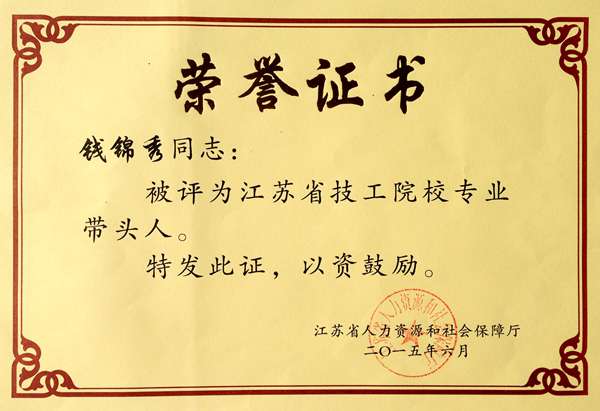 荣誉证书
钱锦秀同志：
被评为江苏省技工院校专业
带头人。
特发此证，以资鼓励。
江苏省人力资源和社会保障厅
二〇一五年六月